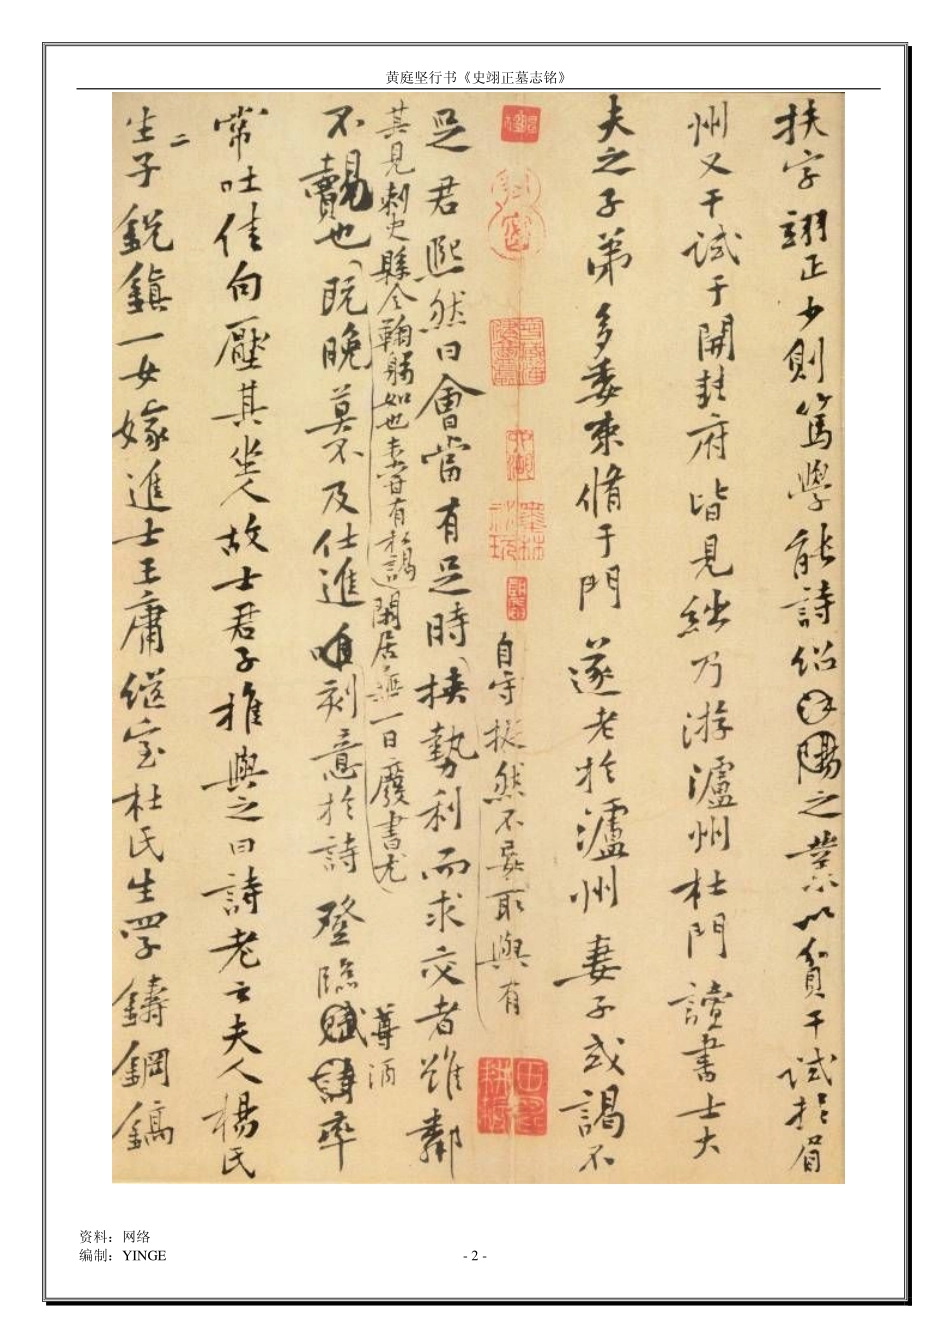 黄庭坚行书《史翊正墓志铭》
扶字翊正少则篤學能詩紹之業以貧干試於眉
州又干試于開封府皆見絀乃游瀘州杜門讀書士大
夫之子弟多委束脩于門遂老於瀘州妻子或謁不
自守挺然不妄取與有
足君熙然曰會當有足時挟勢利而求交者雖鄰
其見刺史縣令鞠躬如也未嘗有私謁閑居無一日廢書尤
不覿也既晚莫不及仕進唯刻意於詩登臨尊酒率
常吐佳句壓其坐人故士君子推與之曰詩老云夫人楊氏
生二子鋭鎮一女嫁進士王庸继室杜氏生四子鑄鋼鎬
资料：网络
编制：YINGE
- 2 -